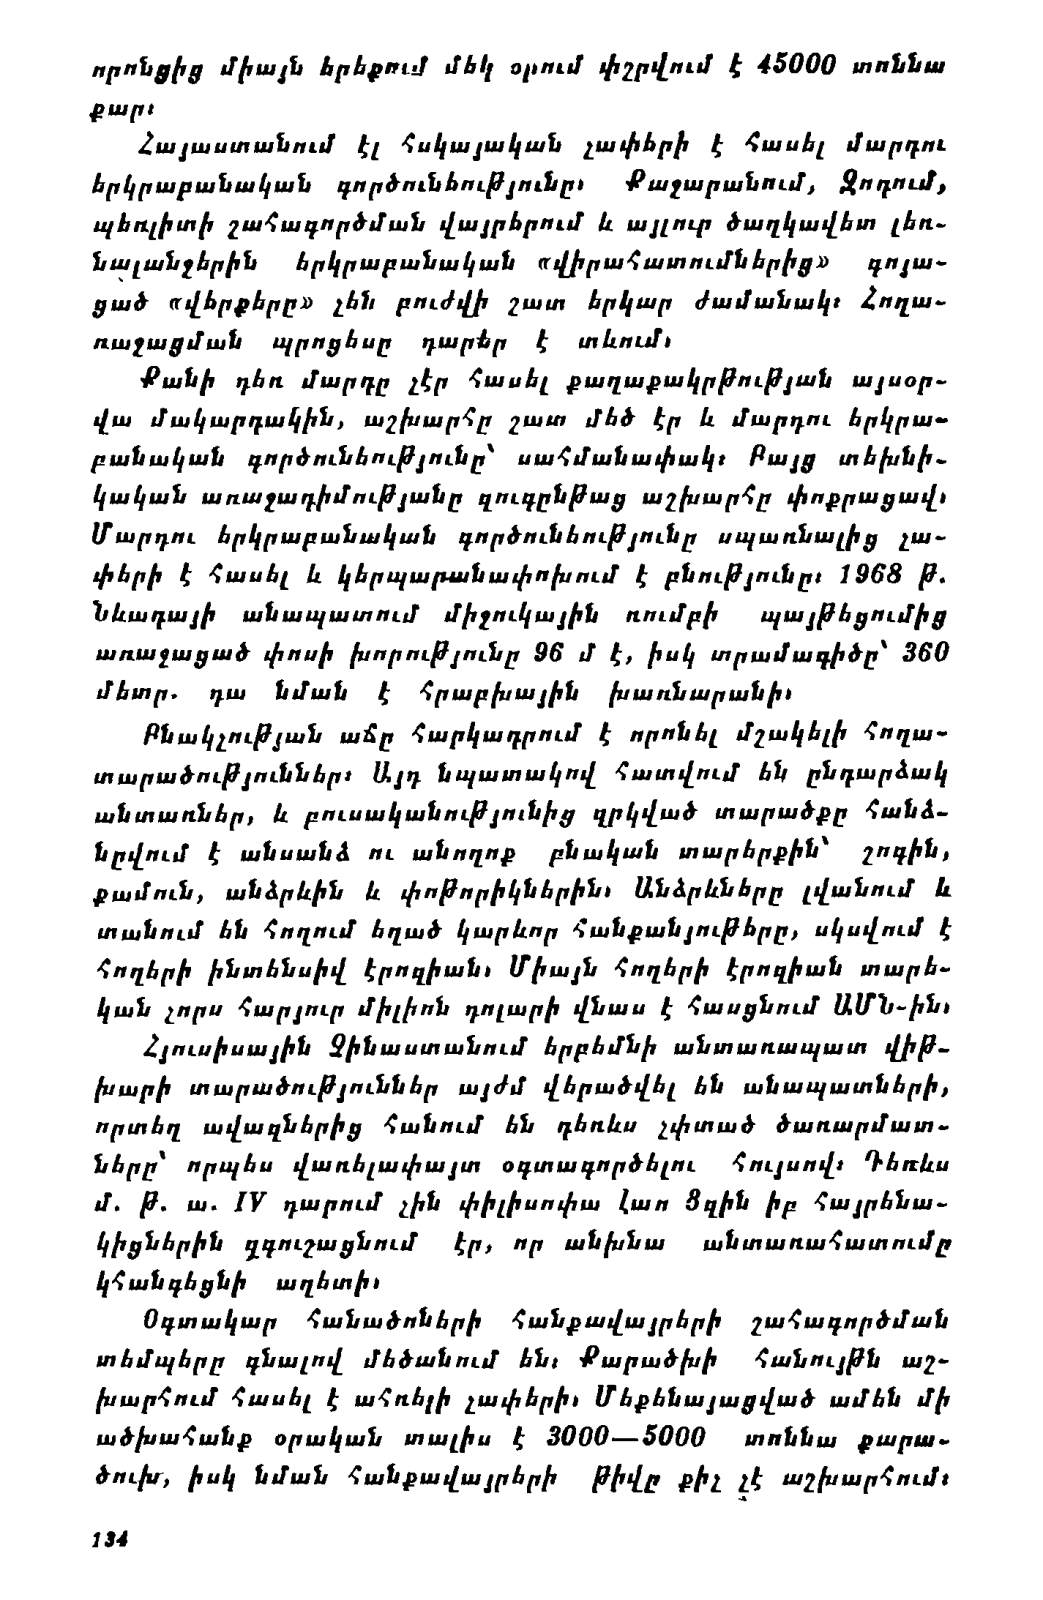 որոնցից միայն երեքում մեկ օրում փշրվում է 45000 տոննա
քար։
Հայաստանում էլ հսկայական չափերի է հասել մարդու
երկրաբանական գործունեությունը։ Քաջարանում, Զոդում,
պեռլիտի շահագործման վայրերում և այլուր ծաղկավետ լեռ-
նալանջերին երկրաբանական «վիրահատումներից» գոյա-
ցած «վերքերը» չեն բուժվի շատ երկար ժամանակ։ Հողա-
ռաջացման պրոցեսը դարեր է տևում։
Քանի դեռ մարդը չէր հասել քաղաքակրթության այսօր-
վա մակարդակին, աշխարհը շատ մեծ էր և մարդու երկրա-
բանական գործունեությունը՝ սահմանափակ։ Բայց տեխնի-
կական առաջադիմությանը զուգընթաց աշխարհը փոքրացավ։
Մարդու երկրաբանական գործունեությունը սպառնալից չա-
փերի է հասել և կերպարանափոխում է բնությունը։ 1968 թ.
Նևադայի անապատում միջուկային ռումբի պայթեցումից
առաջացած փոսի խորությունը 96 մ է, իսկ տրամագիծը՝ 360
մետր. դա նման է հրաբխային խառնարանի։
Բնակչության աճը հարկադրում է որոնել մշակելի հողա-
տարածություններ։ Այդ նպատակով հատվում են ընդարձակ
անտառներ, և բուսականությունից զրկված տարածքը հանձ-
նըվում է անսանձ ու անողոք բնական տարերքին՝ շոգին,
քամուն, անձրևին և փոթորիկներին։ Անձրևները լվանում և
տանում են հողում եղած կարևոր հանքանյութերը, սկսվում է
հողերի ինտենսիվ էրոզիան։ Միայն հողերի էրոզիան տարե-
կան չորս հարյուր միլիոն դոլարի վնաս է հասցնում ԱՄՆ-ին։
Հյուսիսային Չինաստանում երբեմնի անտառապատ վիթ-
խարի տարածություններ այժմ վերածվել են անապատների,
որտեղ ավազներից հանում են դեռևս չփտած ծառարմատ-
ները՝ որպես վառելափայտ օգտագործելու հույսով։ Դեռևս
մ. թ. ա. IV դարում չին փիլիսոփա Լաո Ցզին իր հայրենա-
կիցներին զգուշացնում էր, որ անխնա անտառահատումը
կհանգեցնի աղետի։
Օգտակար հանածոների հանքավայրերի շահագործման
տեմպերը գնալով մեծանում են։ Քարածխի հանույթն աշ-
խարհում հասել է ահռելի չափերի։ Մեքենայացված ամեն մի
ածխահանք օրական տալիս է 3000—5000 տոննա քարա-
ծուխ, իսկ նման հանքավայրերի թիվը քիչ չէ աշխարհում։
134